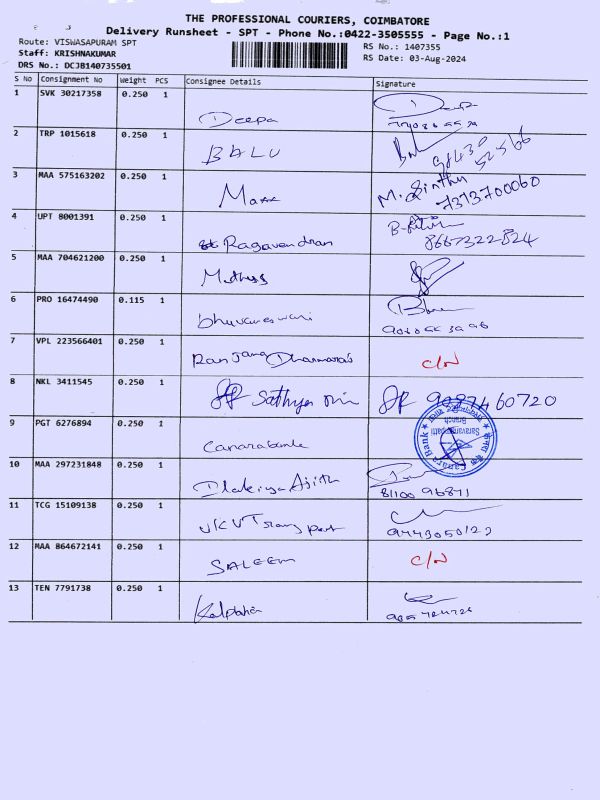 THE PROFESSIONAL COURIERS, COIMBATORE
Delivery Runsheet - SPT - Phone No.:0422-3505555 - Page No.:1
Route: VISWASAPURAM SPT
RS No.: 1407355
Staff: KRISHNAKUMAR
RS Date: 03-Aug-2024
DRS No.: DCJB140735501
S No Consignment No Weight PCS Consignee Details Signature
1 SVK 30217358 0.250 1 Deepa
2 TRP 1015618 0.250 1 BALU 98430 52566
3 MAA 575163202 0.250 1 M. Sinthu 7373700060
4 UPT 8001391 0.250 1 Ragavendran 8667322824
5 MAA 704621200 0.250 1
6 PRO 16474490 0.115 1 bhuvaneswari
7 VPL 223566401 0.250 1 Ranjana Dharmaraj C/N
8 NKL 3411545 0.250 1 Sathya 9087460720
9 PGT 6276894 0.250 1 Canarabank Canara Bank Saravanampatti Branch केनरा बैंक
10 MAA 297231848 0.250 1 Ilakiya Ajith 81100 96871
11 TCG 15109138 0.250 1 VKV Transport 9443050122
12 MAA 864672141 0.250 1 SALEEM C/N
13 TEN 7791738 0.250 1 Kalpana